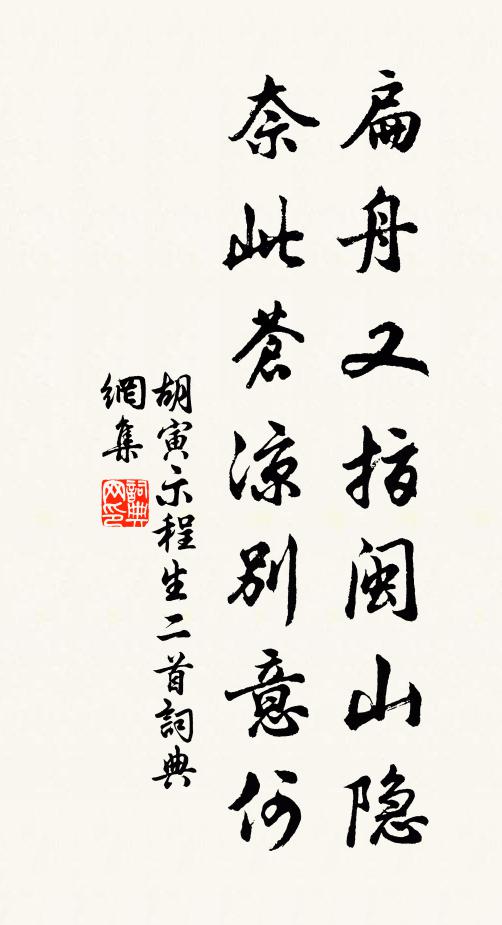 扁舟又指闽山隐
奈此苍凉别意何
胡寅示程生二首词典
網集
詞典
网印